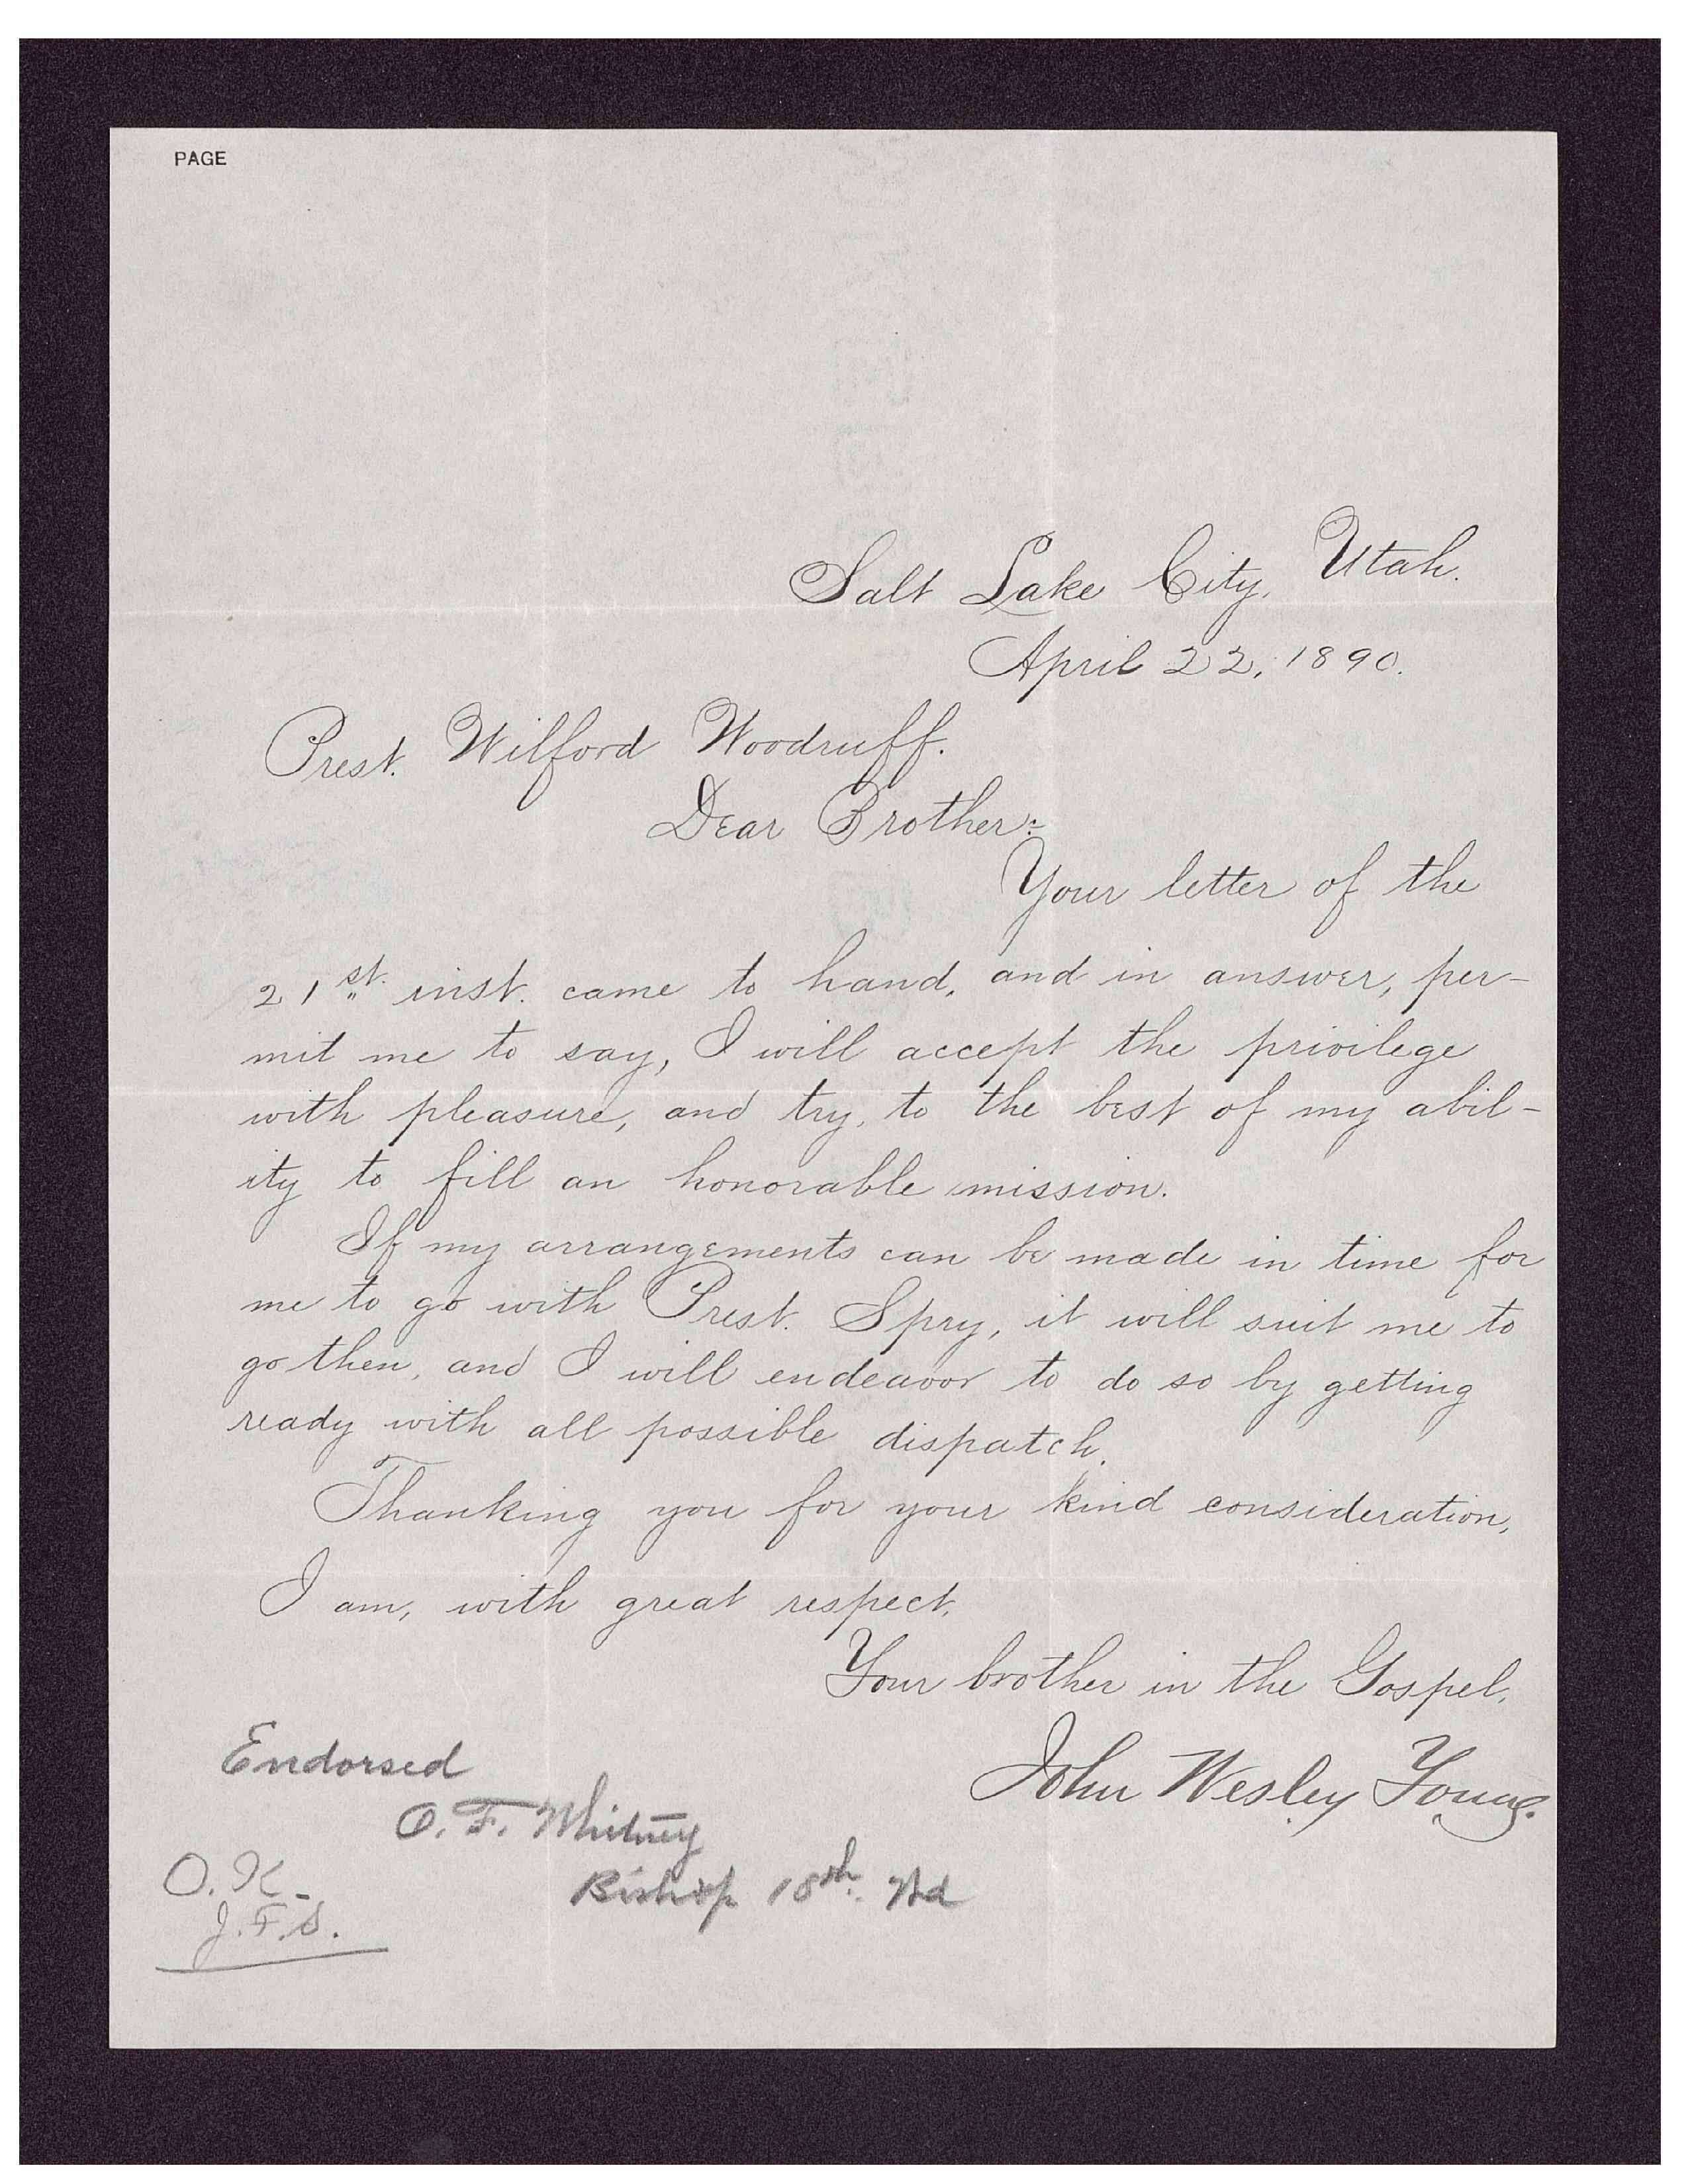 PAGE
Salt Lake City, Utah.
April 22, 1890.
Prest. Wilford Woodruff.
Dear Brother:
Your letter of the
21st. inst. came to hand, and in answer, per-
mit me to say, I will accept the privilege
with pleasure, and try, to the best of my abil-
ity to fill an honorable mission.
If my arrangements can be made in time for
me to go with Prest. Spry, it will suit me to
go then, and I will endeavor to do so by getting
ready with all possible dispatch.
Thanking you for your kind consideration,
I am, with great respect,
Your brother in the Gospel,
John Wesley Young.
Endorsed
O. F. Whitney
Bishop 18th. Wd
O.K.
J.F.S.